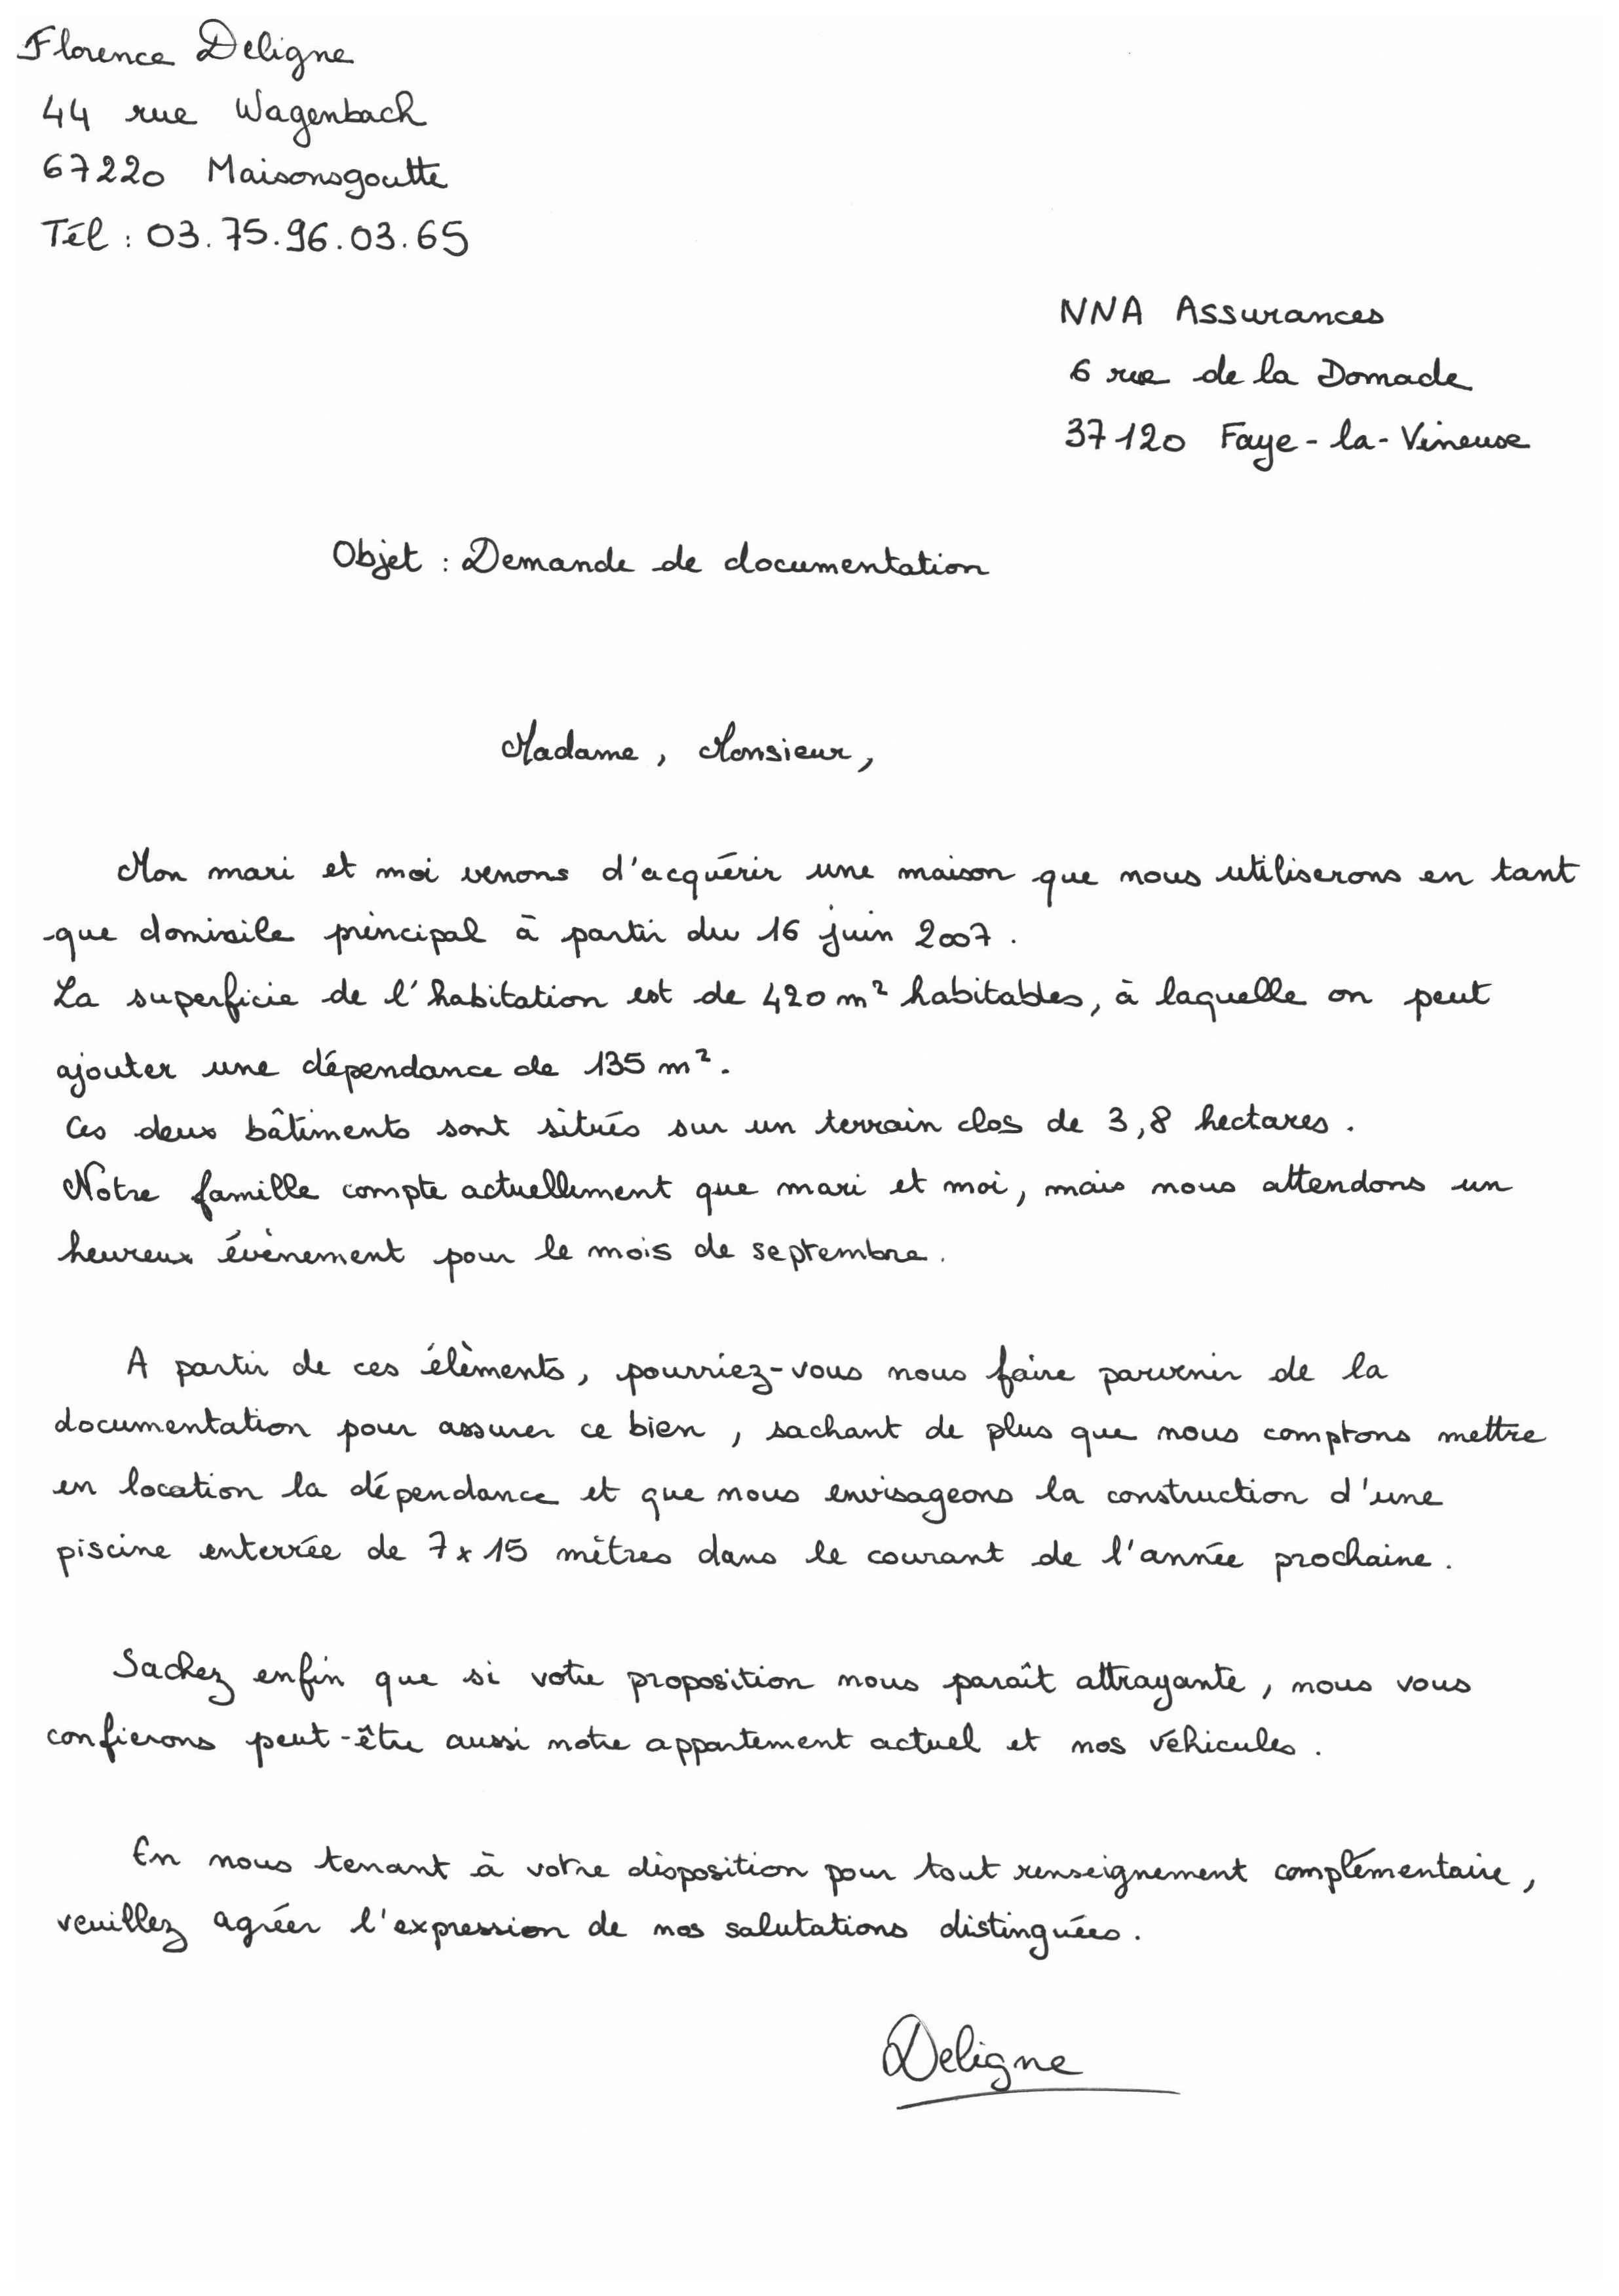 Florence Deligne
44 rue Wagenbach
67220 Maisonsgoutte
Tél : 03.75.96.03.65
NNA Assurances
6 rue de la Domade
37120 Faye-la-Vineuse
Objet : Demande de documentation
Madame, Monsieur,
Mon mari et moi venons d'acquérir une maison que nous utiliserons en tant
que domicile principal à partir du 16 juin 2007.
La superficie de l'habitation est de 420 m² habitables, à laquelle on peut
ajouter une dépendance de 135 m².
Ces deux bâtiments sont situés sur un terrain clos de 3,8 hectares.
Notre famille compte actuellement que mari et moi, mais nous attendons un
heureux évènement pour le mois de septembre.
A partir de ces élèments, pourriez-vous nous faire parvenir de la
documentation pour assurer ce bien, sachant de plus que nous comptons mettre
en location la dépendance et que nous envisageons la construction d'une
piscine enterrée de 7x15 mètres dans le courant de l'année prochaine.
Sachez enfin que si votre proposition nous paraît attrayante, nous vous
confierons peut-être aussi notre appartement actuel et nos véhicules.
En nous tenant à votre disposition pour tout renseignement complémentaire,
veuillez agréer l'expression de nos salutations distinguées.
Deligne